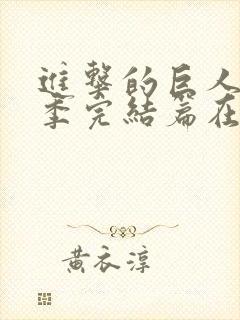 進擊的巨人
季完結篇在
黃衣淳